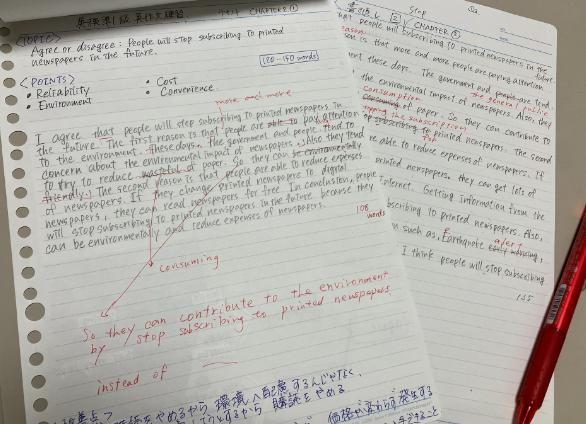 英検準1級 英作文練習 CHAPTER ①
<TOPIC>
Agree or disagree: People will stop subscribing to printed
newspapers in the future.
120-150 words
<POINTS>
• Reliability • Cost
• Environment • Convenience
more and more
I agree that people will stop subscribing to printed newspapers in
the future. The first reason is that people are able to pay attention
to the environment these days. the government and people tend to
concern about the environmental impact of newspapers. Also they
to try to reduce wasteful of paper. So they can be environmentally
friendly. The second reason is that people are able to reduce expenses
of newspapers. If they change printed newspapers to digital
newspapers, they can read newspapers for free. In conclusion, people
will stop subscribing to printed newspapers in the future because they
can be environmentally and reduce expenses of newspapers.
108
words
consuming
So they can contribute to the environment
by stop subscribing to printed newspapers
instead of
② CHAPTER ①
that people will subscribing to printed newspapers in the future
reason is that more and more people are paying attention
ment these days. The government and people are tend
the general public
the environmental impact of newspapers. Also they
consumption
of paper. So they can contribute to
stopping the subscription
printed newspapers. The second
are able to reduce expenses of newspapers. If
printed newspapers, they can get lots of
Internet. Getting information from the
subscribing to printed newspapers. Also,
such as, Earthquake early warning,
alert
I think people will stop subscribing